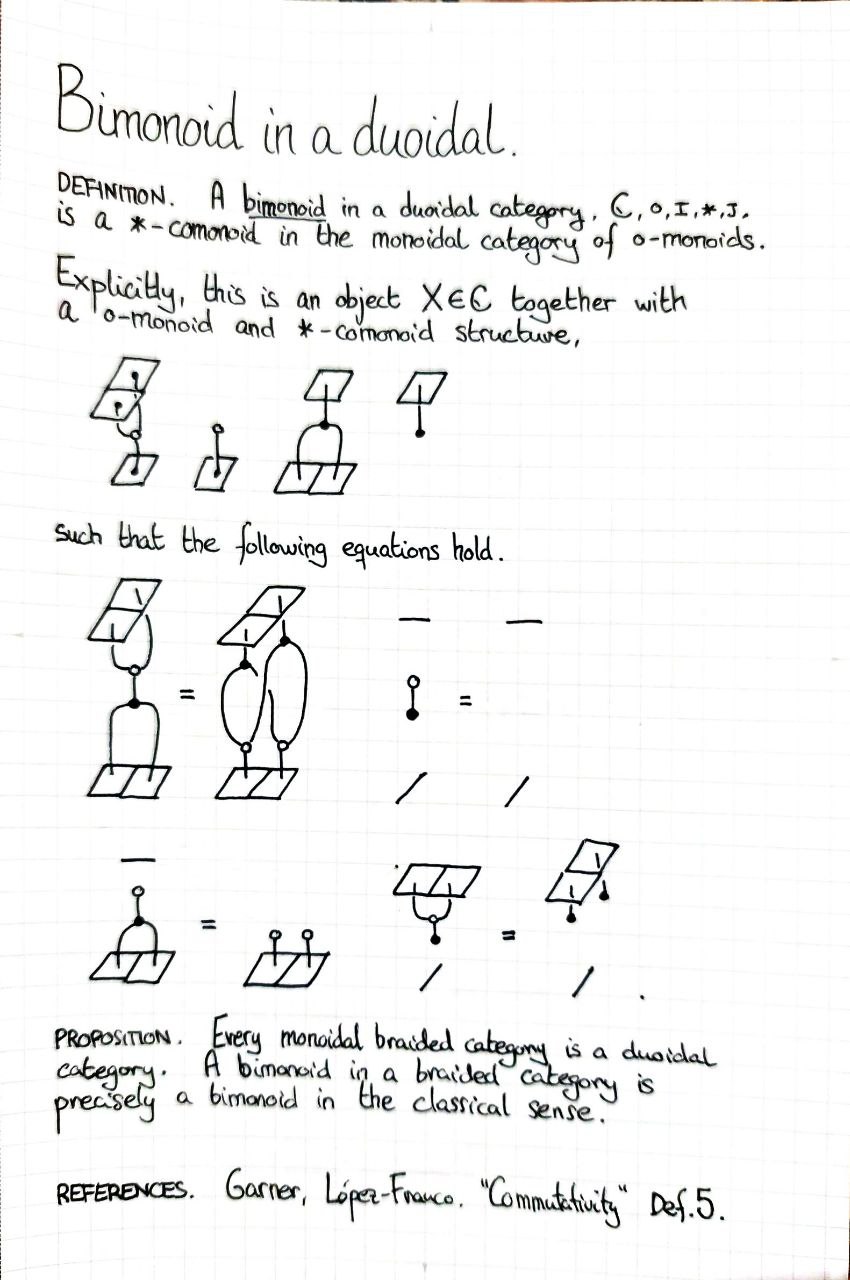 Bimonoid in a duoidal.
DEFINITION. A bimonoid in a duoidal category, C, ∘, I, *, J.
is a *-comonoid in the monoidal category of ∘-monoids.
Explicitly, this is an object X∈C together with
a ∘-monoid and *-comonoid structure,
such that the following equations hold.
=
=
=
=
.
PROPOSITION. Every monoidal braided category is a duoidal
category. A bimonoid in a braided category is
precisely a bimonoid in the classical sense.
REFERENCES. Garner, López-Franco. "Commutativity" Def.5.